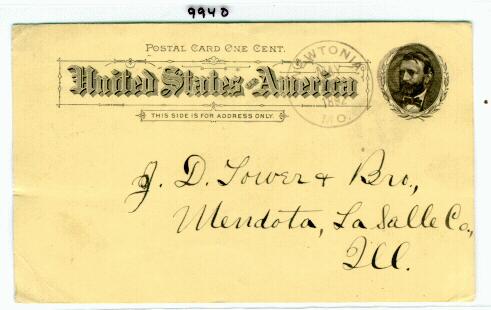 9940
POSTAL CARD ONE CENT.
United States of America
THIS SIDE IS FOR ADDRESS ONLY.
NEWTONIA
MAY
1892
MO.
J. D. Tower & Bro.,
Mendota, La Salle Co.,
Ill.